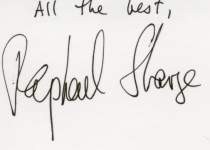 All the best,
Raphael